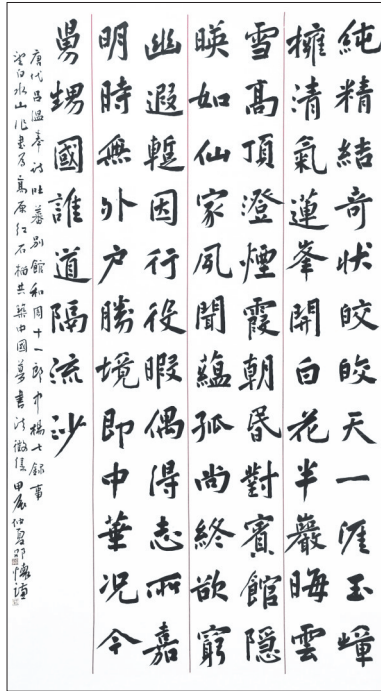 純精結奇状皎皎天一涯玉嶂
擁清氣蓮峯開白花半巖晦雲
雪高頂澄煙霞朝昏對賓館隱
暎如仙家夙聞蘊孤尚終欲窮
幽遐蹔因行役暇偶得志所嘉
明時無外户勝境即中華况今
舅甥國誰道隔流沙
唐代吕温奉诗吐蕃别館和周十一郎中楊七録事
望白水山作書為高原紅石榴共築中國夢書法徵 甲辰仲夏邵